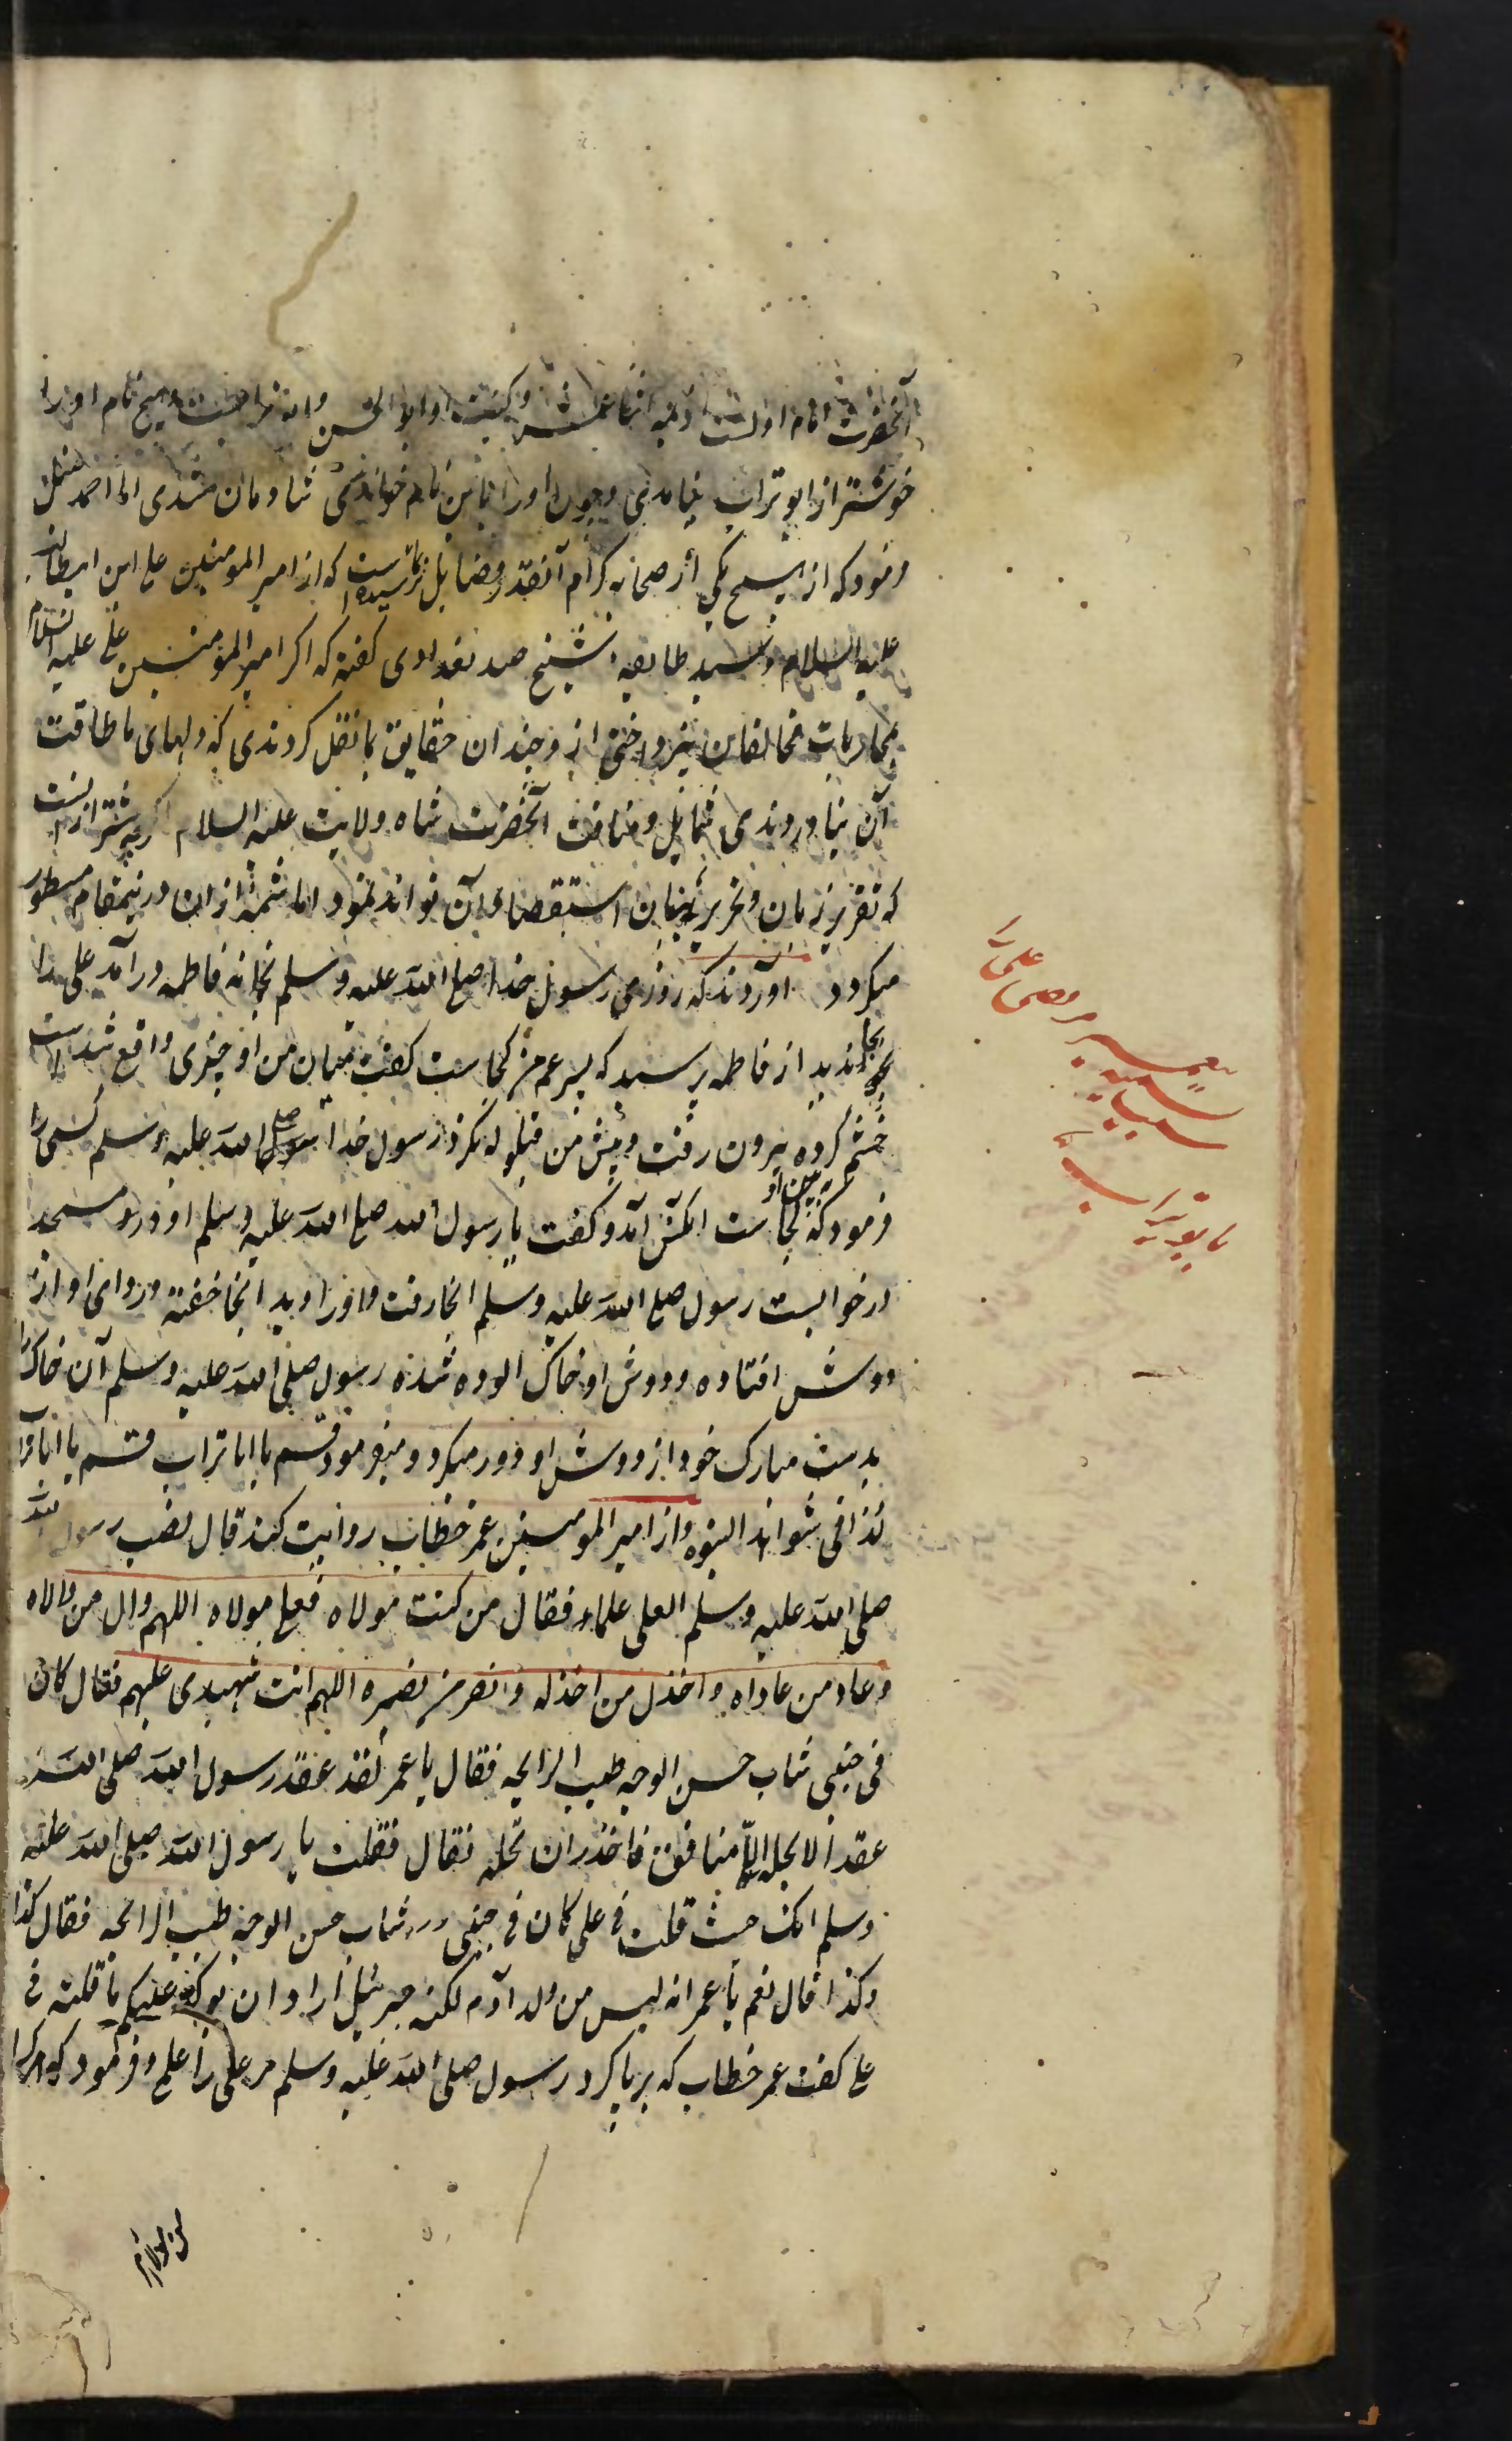 آنحضرت امام اولست از ائمه اثنا عشر و کنیت او ابو الحسن و ابو تراب است و هیچ نام او را
خوشتر از ابو تراب نیامدی و چون او را باین نام خواندندی شادمان شدی امام احمد حنبل
فرمود که از هیچ یکی از صحابه کرام آنقدر فضایل بما نرسیده است که از امیر المومنین علی ابن ابیطالب
علیه السلام و سید طایفه شیخ جنید بغدادی گفته که اگر امیر المومنین علی علیه السلام
بمحاربات مخالفان نپرداختی از و چندان حقایق بما نقل کردندی که دلهای ما طاقت
آن نیاوردندی شمایل و مناقب آنحضرت شاه ولایت علیه السلام اگرچه بیشتر از انست
که تقریر زبان و تحریر بنان استقصاء آن تواند نمود اما شمه از ان درینمقام مسطور
میگردد آورده‌اند که روزی رسول خدا صلی الله علیه وسلم بخانه فاطمه در آمد علی را
بخانه ندید از فاطمه پرسید که پسر عم من کجاست گفت میان من و او چیزی واقع شده است
خشم کرده بیرون رفت و پیش من قیلوله نکرد رسول خدا صلی الله علیه وسلم کسی را
فرمود که ببین او کجاست آنکس آمد و گفت یا رسول الله صلی الله علیه وسلم او در مسجد
در خوابست رسول صلی الله علیه وسلم انجا رفت و او را دید انجا خفته و ردای او از
دوش افتاده و دوش او خاک الوده شده رسول صلی الله علیه وسلم آن خاک را
بدست مبارک خود از دوش او دور میکرد و میفرمود قم یا ابا تراب قم یا ابا تراب
کذا فی شواهد النبوه و از امیر المومنین عمر خطاب روایت کنند قال نصب رسول الله
صلی الله علیه وسلم العلی علما فقال من کنت مولاه فعلی مولاه اللهم وال من والاه
وعاد من عاداه واخذل من اخذله وانصر من نصره اللهم انت شهیدی علیهم فقال کان
فی جنبی شاب حسن الوجه طیب الرایحه فقال یا عمر لقد عقد رسول الله صلی الله
عقدا لا یحله الا منافق فاحذر ان تحله فقال فقلت یا رسول الله صلی الله علیه
وسلم انک حیث قلت فی علی کان فی جنبی شاب حسن الوجه طیب الرائحه فقال کذا
وکذا قال نعم یا عمر انه لیس من ولد آدم لکنه جبرئیل اراد ان یوکد علیکم ما قلته فی
علی گفت عمر خطاب که برپا کرد رسول صلی الله علیه وسلم مر علی را علم و فرمود که هرکرا
علی را
سبب تسمیه
بابو تراب
من مولا ام